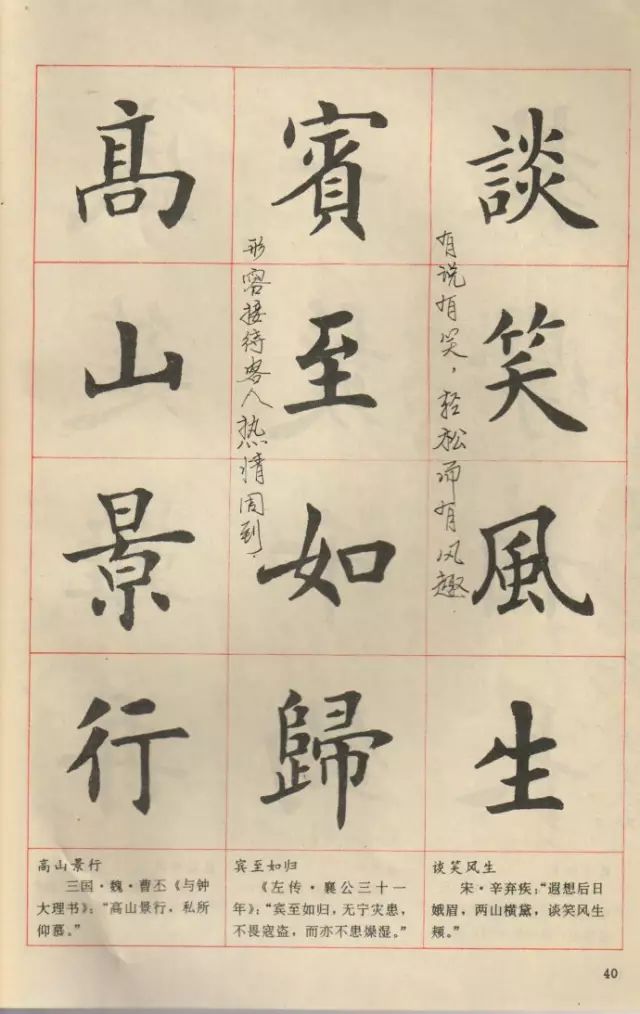 談笑風生
有说有笑，轻松而有风趣.
賓至如歸
形容接待客人热情周到.
高山景行
高山景行
三国·魏·曹丕《与钟
大理书》：“高山景行，私所
仰慕。”
宾至如归
《左传·襄公三十一
年》：“宾至如归，无宁灾患，
不畏寇盗，而亦不患燥湿。”
谈笑风生
宋·辛弃疾：“遐想后日
娥眉，两山横黛，谈笑风生
颊。”
40